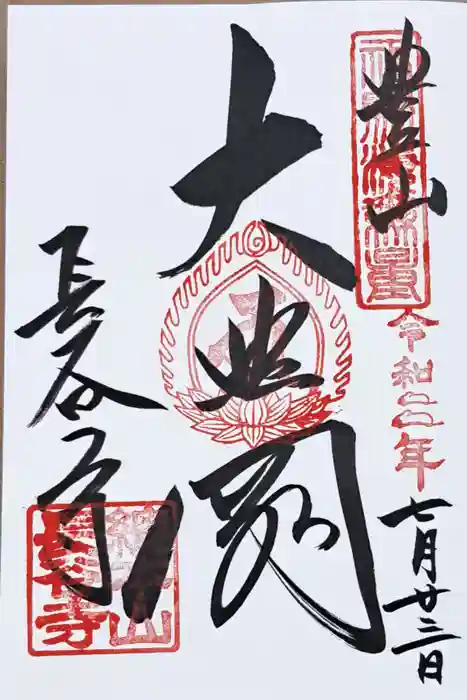 豊山
令和二年
七月廿三日
大悲閣
長谷寺
總本山
長谷寺